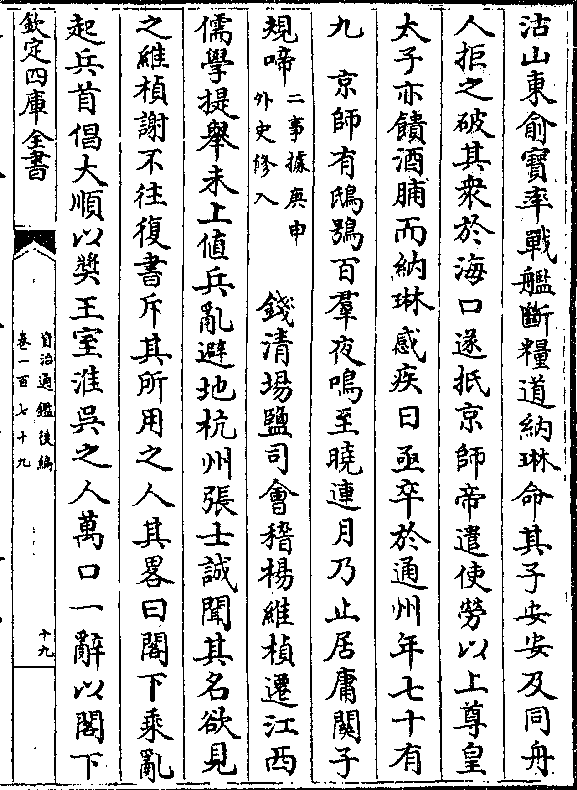 沽山東俞寶率戰艦斷糧道納琳命其子安安及同舟
人拒之破其衆於海口遂抵京師帝遣使勞以上尊皇
太子亦饋酒脯而納琳感疾日亟卒於通州年七十有
九　京師有鴟鴞百羣夜鳴至曉連月乃止居庸關子
規啼二事據庚申
外史修入　錢清場鹽司會稽楊維楨遷江西
儒學提舉未上值兵亂避地杭州張士誠聞其名欲見
之維楨謝不往復書斥其所用之人其畧曰閣下乘亂
起兵首倡大順以奬王室淮吳之人萬口一辭以閣下
欽定四庫全書
資治通鑑後編
卷一百七十九
十九